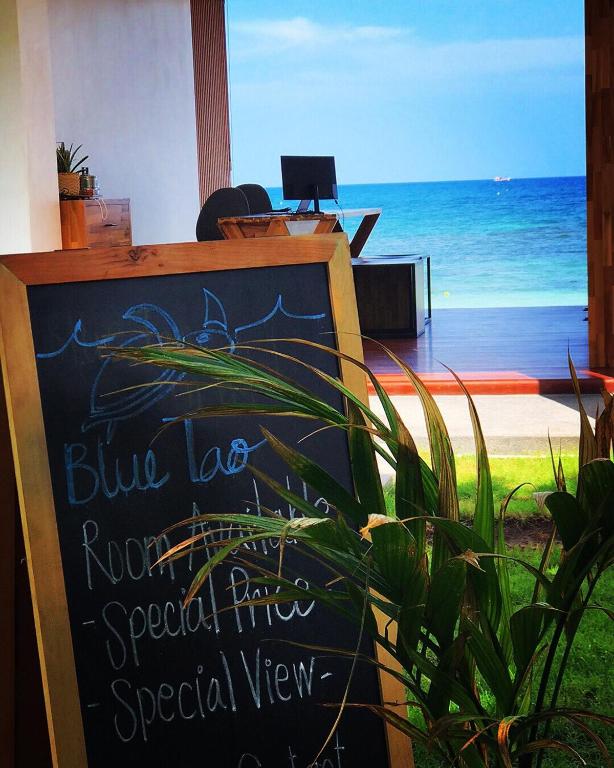 Blue Tao
Room Available
- Special Price
- Special View -